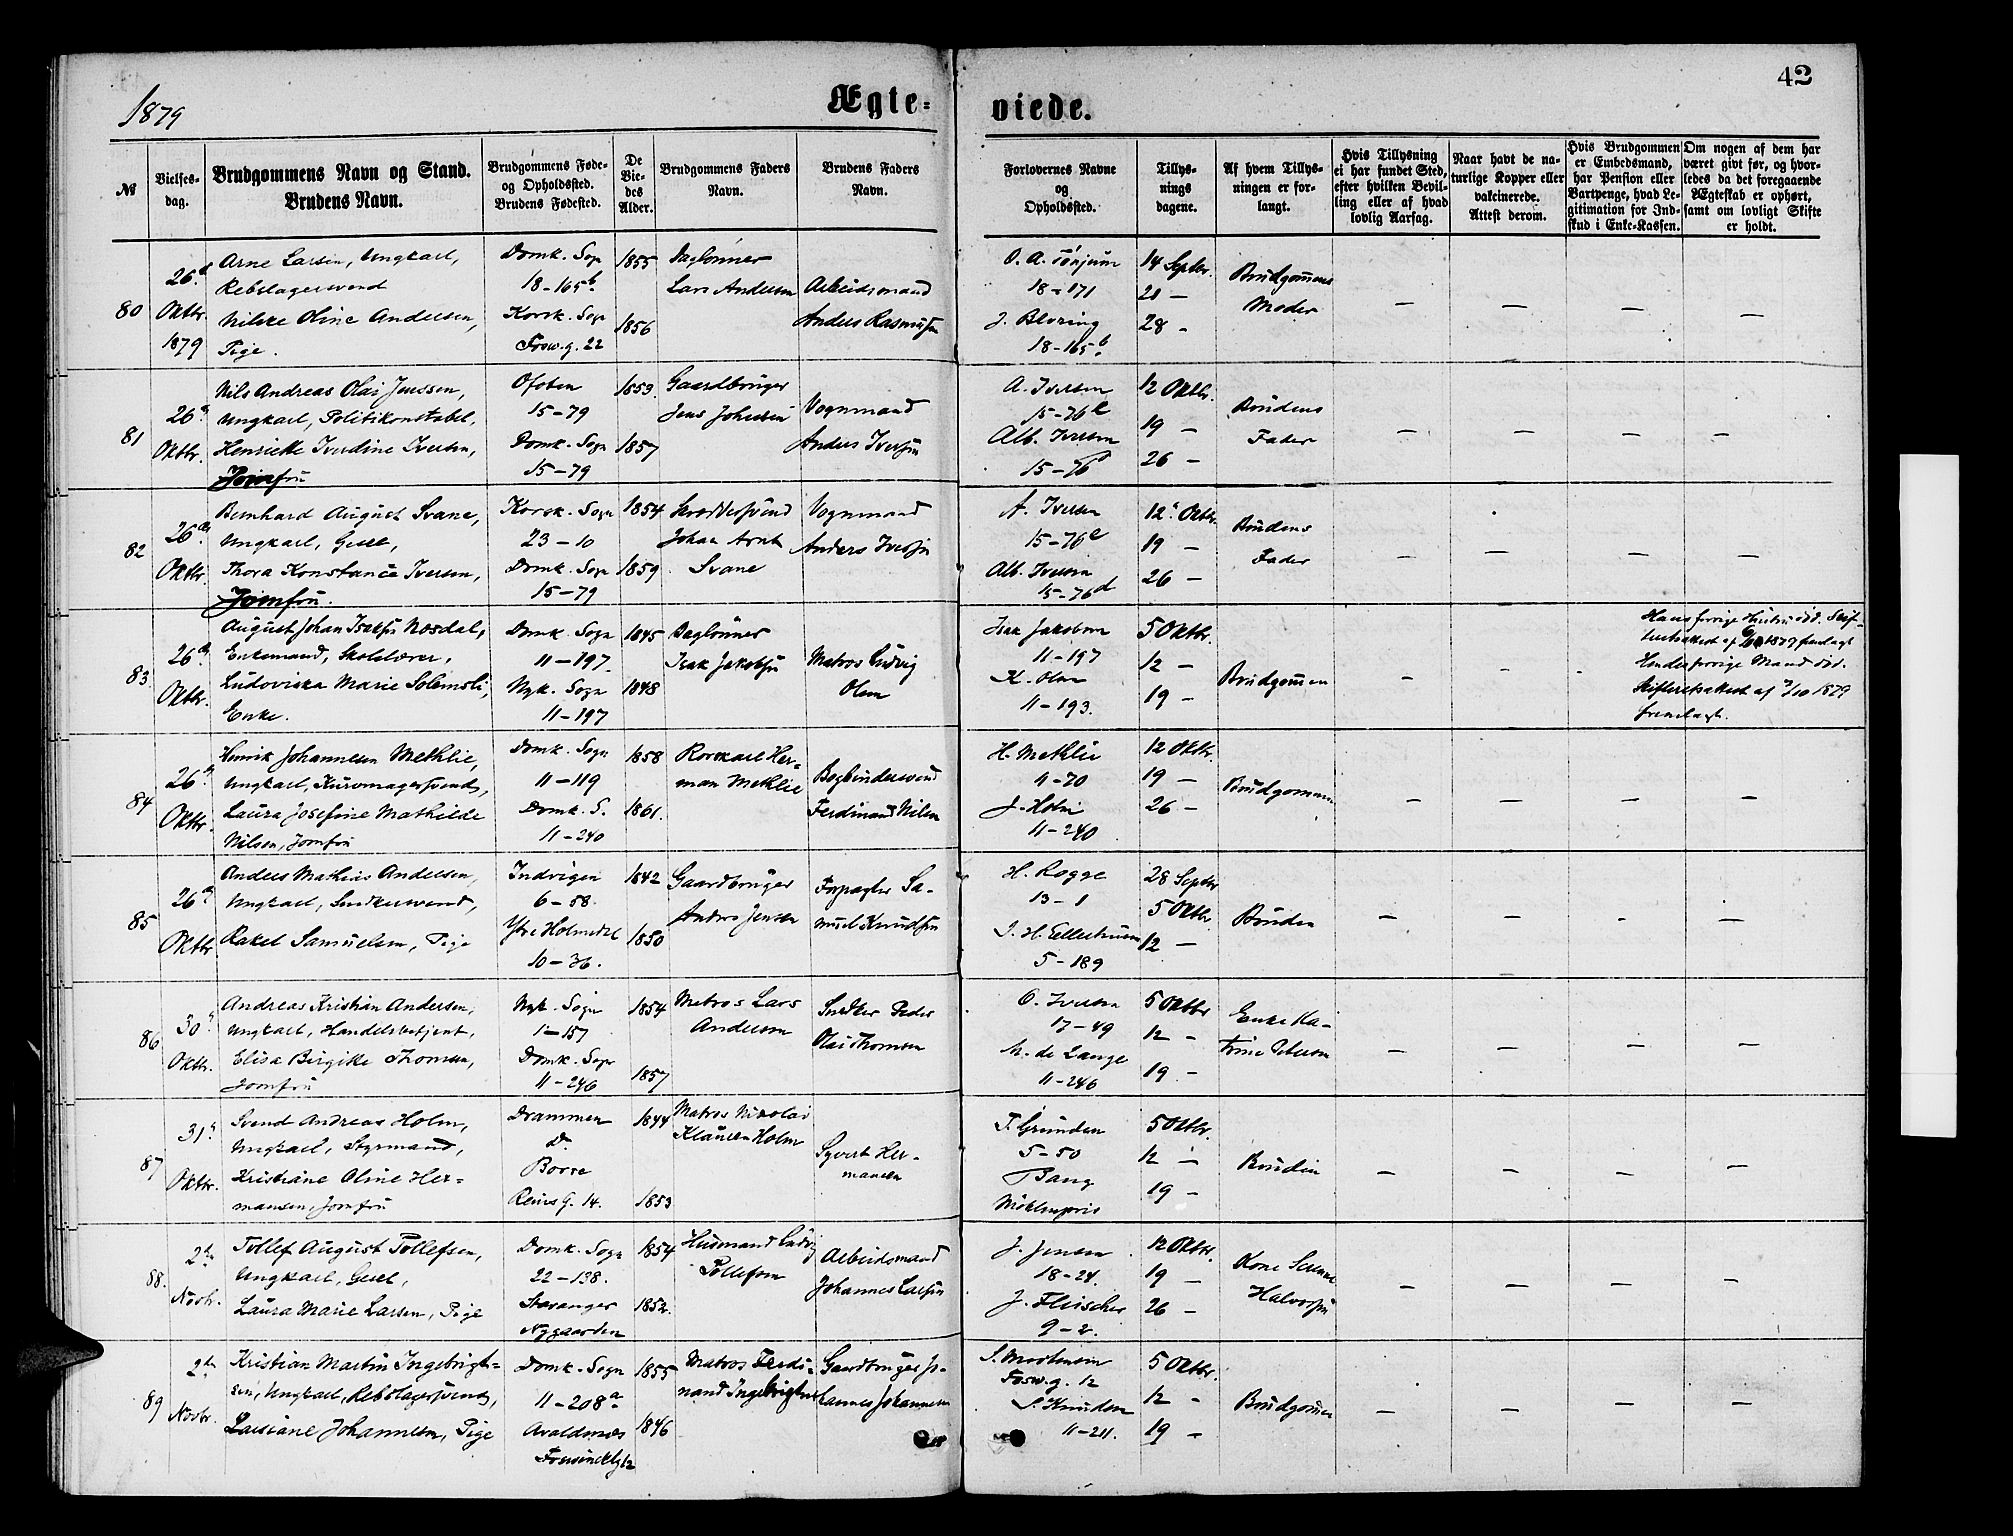 1879
Ægte=
viede.
42
No
Vielses-
dag.
Brudgommens Navn og Stand.
Brudens Navn.
Brudgommens Føde-
og Opholdssted.
Brudens Fødested.
De
Vie-
des
Alder.
Brudgommens Faders
Navn.
Brudens Faders
Navn.
Forlovernes Navne
og
Opholdssted.
Tillys-
nings
dagene.
Af hvem Tillys-
ningen er for-
langt.
Hvis Tillysning
ei har fundet Sted,
efter hvilken Bevil-
ling eller af hvad
lovlig Aarsag.
Naar havt de na-
turlige Kopper eller
vakcinerede.
Attest derom.
Hvis Brudgommen
er Embedsmand,
har Pension eller
Vartpenge, hvad Le-
gitimation for Ind-
skud i Enke-Kassen.
Om nogen af dem har
været givt før, og hvor-
ledes da det foregaaende
Ægteskab er ophørt,
samt om lovligt Skifte
er holdt.
80
26d
Oktbr.
1879
Arne Larsen, Ungkarl,
Rebslagersvend
Oline Andersen,
Pige.
Domk. Sogn
18-165b
Korsk. Sogn
Fosw.g. 22
1855
1856
Daglønner
Lars Andersen
Arbeidsmand
Anders Rasmussen
O. A. Tønjum
18-171
J. Blyring
18-165b
14 Septbr.
21 —
28 -
Brudgommens
Moder
— — — —
81
26d
Oktbr.
Nils Andreas Olai Jenssen,
Ungkarl, Politikonstabel,
Henriette Iverdine Iversen,
Jomfru
Ofoten
15-79
Domk. Sogn
15-79
1853
1857
Gaardbruger
Jens Johnsen
Vognmand
Anders Iversen
A. Iversen
15-76e
Alb. Iversen
15-76d
12 Oktbr.
19 —
26 —
Brudens
Fader
— — — —
82
26de
Oktbr
Bernhard August Svane,
Ungkarl, Gesel,
Thora Konstance Iversen,
Jomfru.
Korsk. Sogn
23-10
Domk. Sogn
15-79
1854
1859
Skræddersvend
Johan Arnt
Svane
Vognmand
Anders Iversen
A. Iversen
15-76e
Alb. Iversen
15-76d
12 Oktbr.
19 —
26 —
Brudens
Fader
— — — —
83
26d
Oktbr.
August Johan Isaksen Nosdal,
Enkemand, Skolelærer,
Ludovika Marie Solemsli,
Enke.
Domk. Sogn
11-197
Nyk. Sogn
11-197
1845
1848
Daglønner
Isak Jakobsen
Matros Ludvig
Olsen
Isak Jakobsen
11-197
K. Olsen
11-193.
5 Oktbr.
12 —
19 —
Brudgommen
— — -
Hans forrige Hustru død. Skif-
teretsattest af 1879 fremlagt
Hendes forrige Mand død.
Skifteretsattest af 3/10 1879
fremlagt.
84
26d
Oktbr.
Henrik Johannesen Methlie,
Ungkarl, Kurvmagersvend,
Laura Josefine Mathilde
Nilsen, Jomfru
Domk. Sogn
11-119
Domk. S.
11-240
1858
1861.
Rorskarl Her-
man Methlie
Bogbindersvend
Ferdinand Nilsen
H. Methlie
11-70
J. Holm
11-240
12 Oktbr.
19 —
26 —
Brudgommen
— — — —
85
26d
Oktbr
Anders Mathias Andersen,
Ungkarl, Snedkersvend,
Rakel Samuelsen, Pige
Indvigen
6-58
Ytre Holmedal
10-36.
1842
1850
Gaardbruger
Anders Jensen
Forpagter Sa-
muel Knudsen
H. Rogge
13-1
J. H. Ellertsen
5-189
28 Septbr
5 Oktbr
12 —
Bruden
— — - —
86
30d
Oktbr.
Andreas Kristian Andersen,
Ungkarl, Handelsbetjent,
Elisa Birgitte Thomsen,
Jomfru
Nyk. Sogn
1-157
Domk. Sogn
11-246
1854
1857
Matros Lars
Andersen
Snedker Peder
Olai Thomsen
O. Iversen
17-49
M. de Lange
11-246
5 Oktbr
12 -
19 -
Enke Ka-
trine Petersen
— — — —
87
31d
Oktbr.
Svend Andreas Holm,
Ungkarl, Styrmand,
Kristiane Oline Her-
mansen, Jomfru
Drammen
D
Borre
Reins G. 14.
1844
1853
Matros Nikolai
Klausen Holm
Syvert Her-
mansen
F. Grunden
5-50
Bang
Møhlenpris
5 Oktbr.
12 —
19 -
Bruden
— — — —
88.
2de
Novbr.
Tollef August Tollefsen,
Ungkarl, Gesel,
Laura Marie Larsen, Pige
Domk. Sogn
22-138.
Stavanger
Nygaarden
1854
1852.
Husmand Ludvig
Tollefsen
Arbeidsmand
Johannes Larsen
J. Jensen
18-24.
J. Fleischer
9-2.
12 Oktbr.
19 —
26 —
Kone Serine
Halvorsen
— — — —
89
2de
Novbr.
Kristian Martin Ingebrigt-
sen, Ungkarl, Rebslagersvend,
Larsiane Johannesen, Pige
Domk. Sogn
11-208a
Avaldsnes
1855
1846
Matros Ferdi-
nand Ingebrigtsen
Gaardbruger Jo-
hannes Johannesen
S. Mortensen
Fosw.g. 12
S. Knudsen
11-211.
5 Oktbr.
12 -
19 -
Brudgommen
— — — —